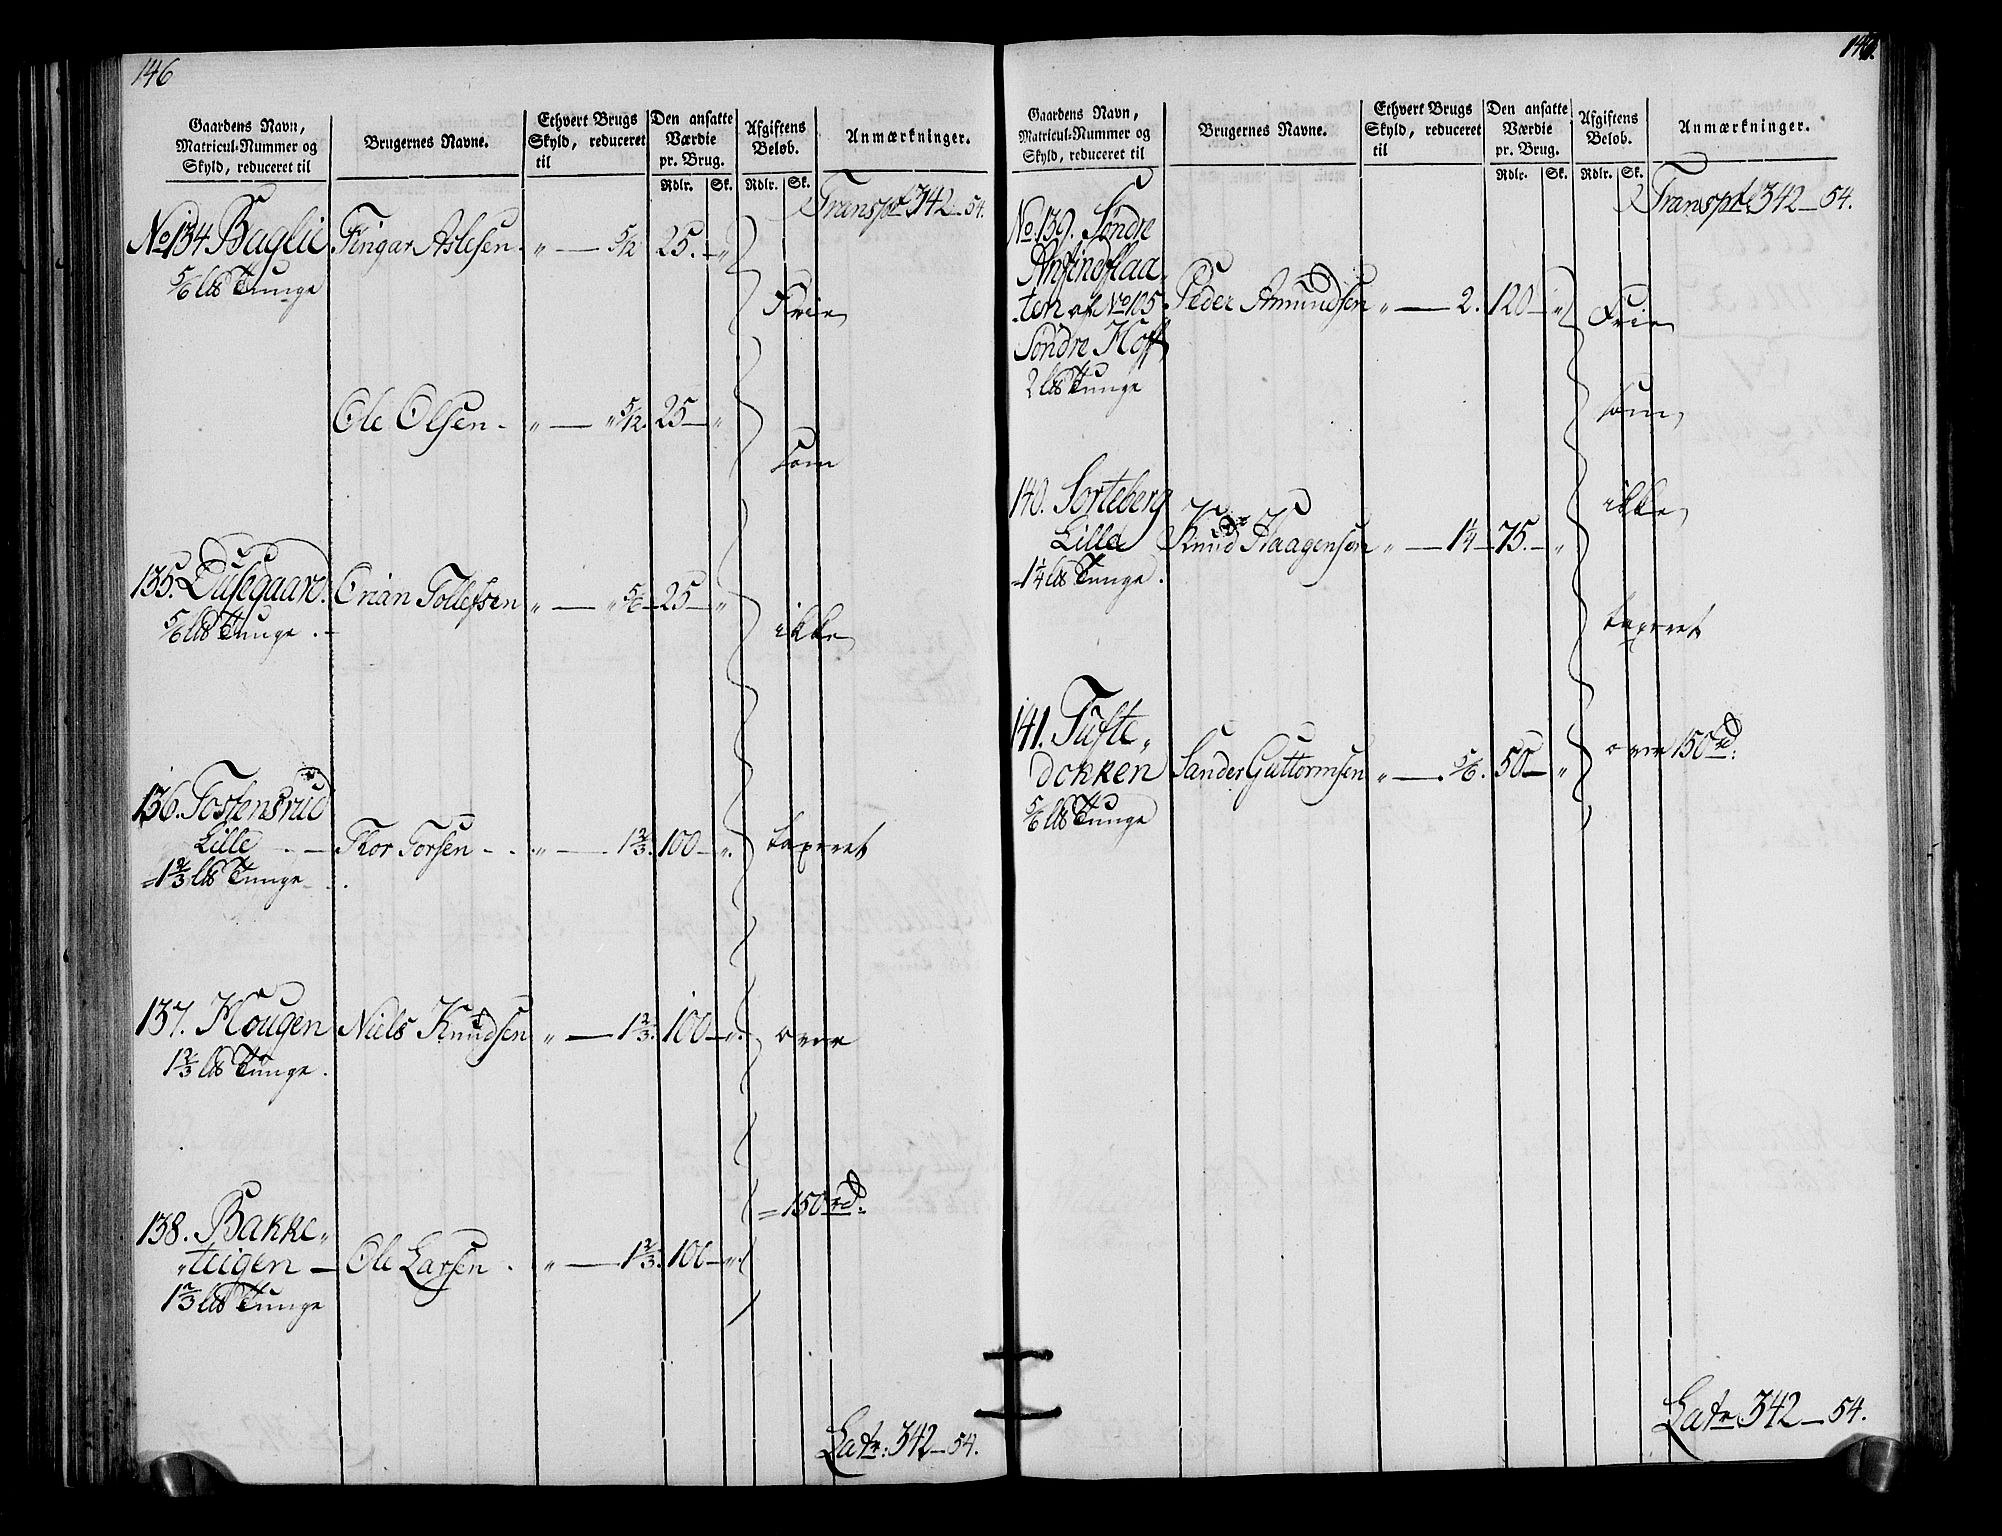 146
Gaardens Navn,
Matricul-Nummer og
Skyld, reduceret til
Brugernes Navne.
Ethvert Brugs
Skyld, reduceret
til
Den ansatte
Værdie
pr. Brug.
Rdlr. Sk.
Afgiftens
Beløb.
Rdlr. Sk.
Anmærkninger.
Transpt 342 – 54.
No 134 Baglie Fingar Aslesen. „ — 5/12 25. – „
5/6 lb Tunge
Frie
Ole Olsen. „ — „ 5/12. 25 – „
som
135. Dusegaard. Orian Tollefsen „ — „ 5/6 – 25 – „
5/6 lb Tunge. –
ikke
136. Tostensrud
Lille – Thor Torsen – . „ — 1 2/3. 100 – „
= 1 2/3 lb Tunge –
taxeret
137. Hougen Niels Knudsen „ — 1 2/3. 100 – „
1 2/3 lb Tunge.
over
= 150 rd.
138. Bakke„
„teigen — Ole Larsen. „ — 1 2/3. 100 – „
1 2/3 lb Tunge
Latr. 342 – 54.
Gaardens Navn,
Matricul-Nummer og
Skyld, reduceret til
Brugernes Navne.
Ethvert Brugs
Skyld, reduceret
til
Den ansatte
Værdie
pr. Brug.
Rdlr. Sk.
Afgiftens
Beløb.
Rdlr. Sk.
Anmærkninger.
Transpt 342 – 54.
No. 139. Søndre
Anfinslaa„
„ten af No 105 Peder Amundsen „ — 2. 120 – „
Søndre Hoff
2 lb Tunge
Frie
som
140. Sorteberg
Lille Knud Haagensen „ — 1 1/4 – 75. – „
= 1 1/4 lb Tunge.
ikke
taxeret
141. Tufte„
dokken Sander Guttormsen „ — 5/6. 50 – „
5/6 lb Tunge
over 150 rd.
Latr 342 – 54.